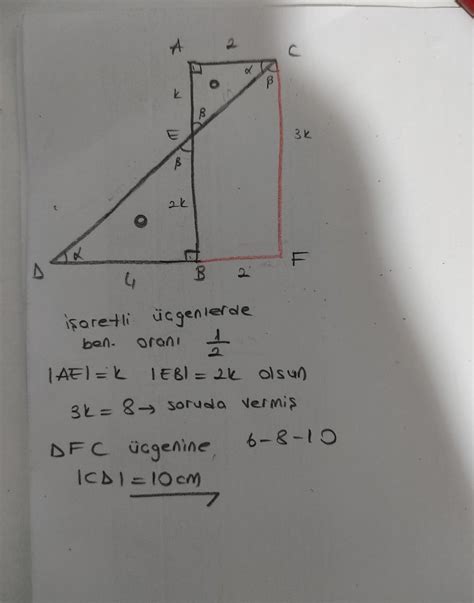 A 2 C
k α β
β
E 3k
β
2k
α
D 4 B 2 F
işaretli üçgenlerde
ben. oranı 1/2
|AE|=k |EB|=2k olsun
3k = 8 → soruda vermiş
DFC üçgenine, 6-8-10
|CD| = 10cm